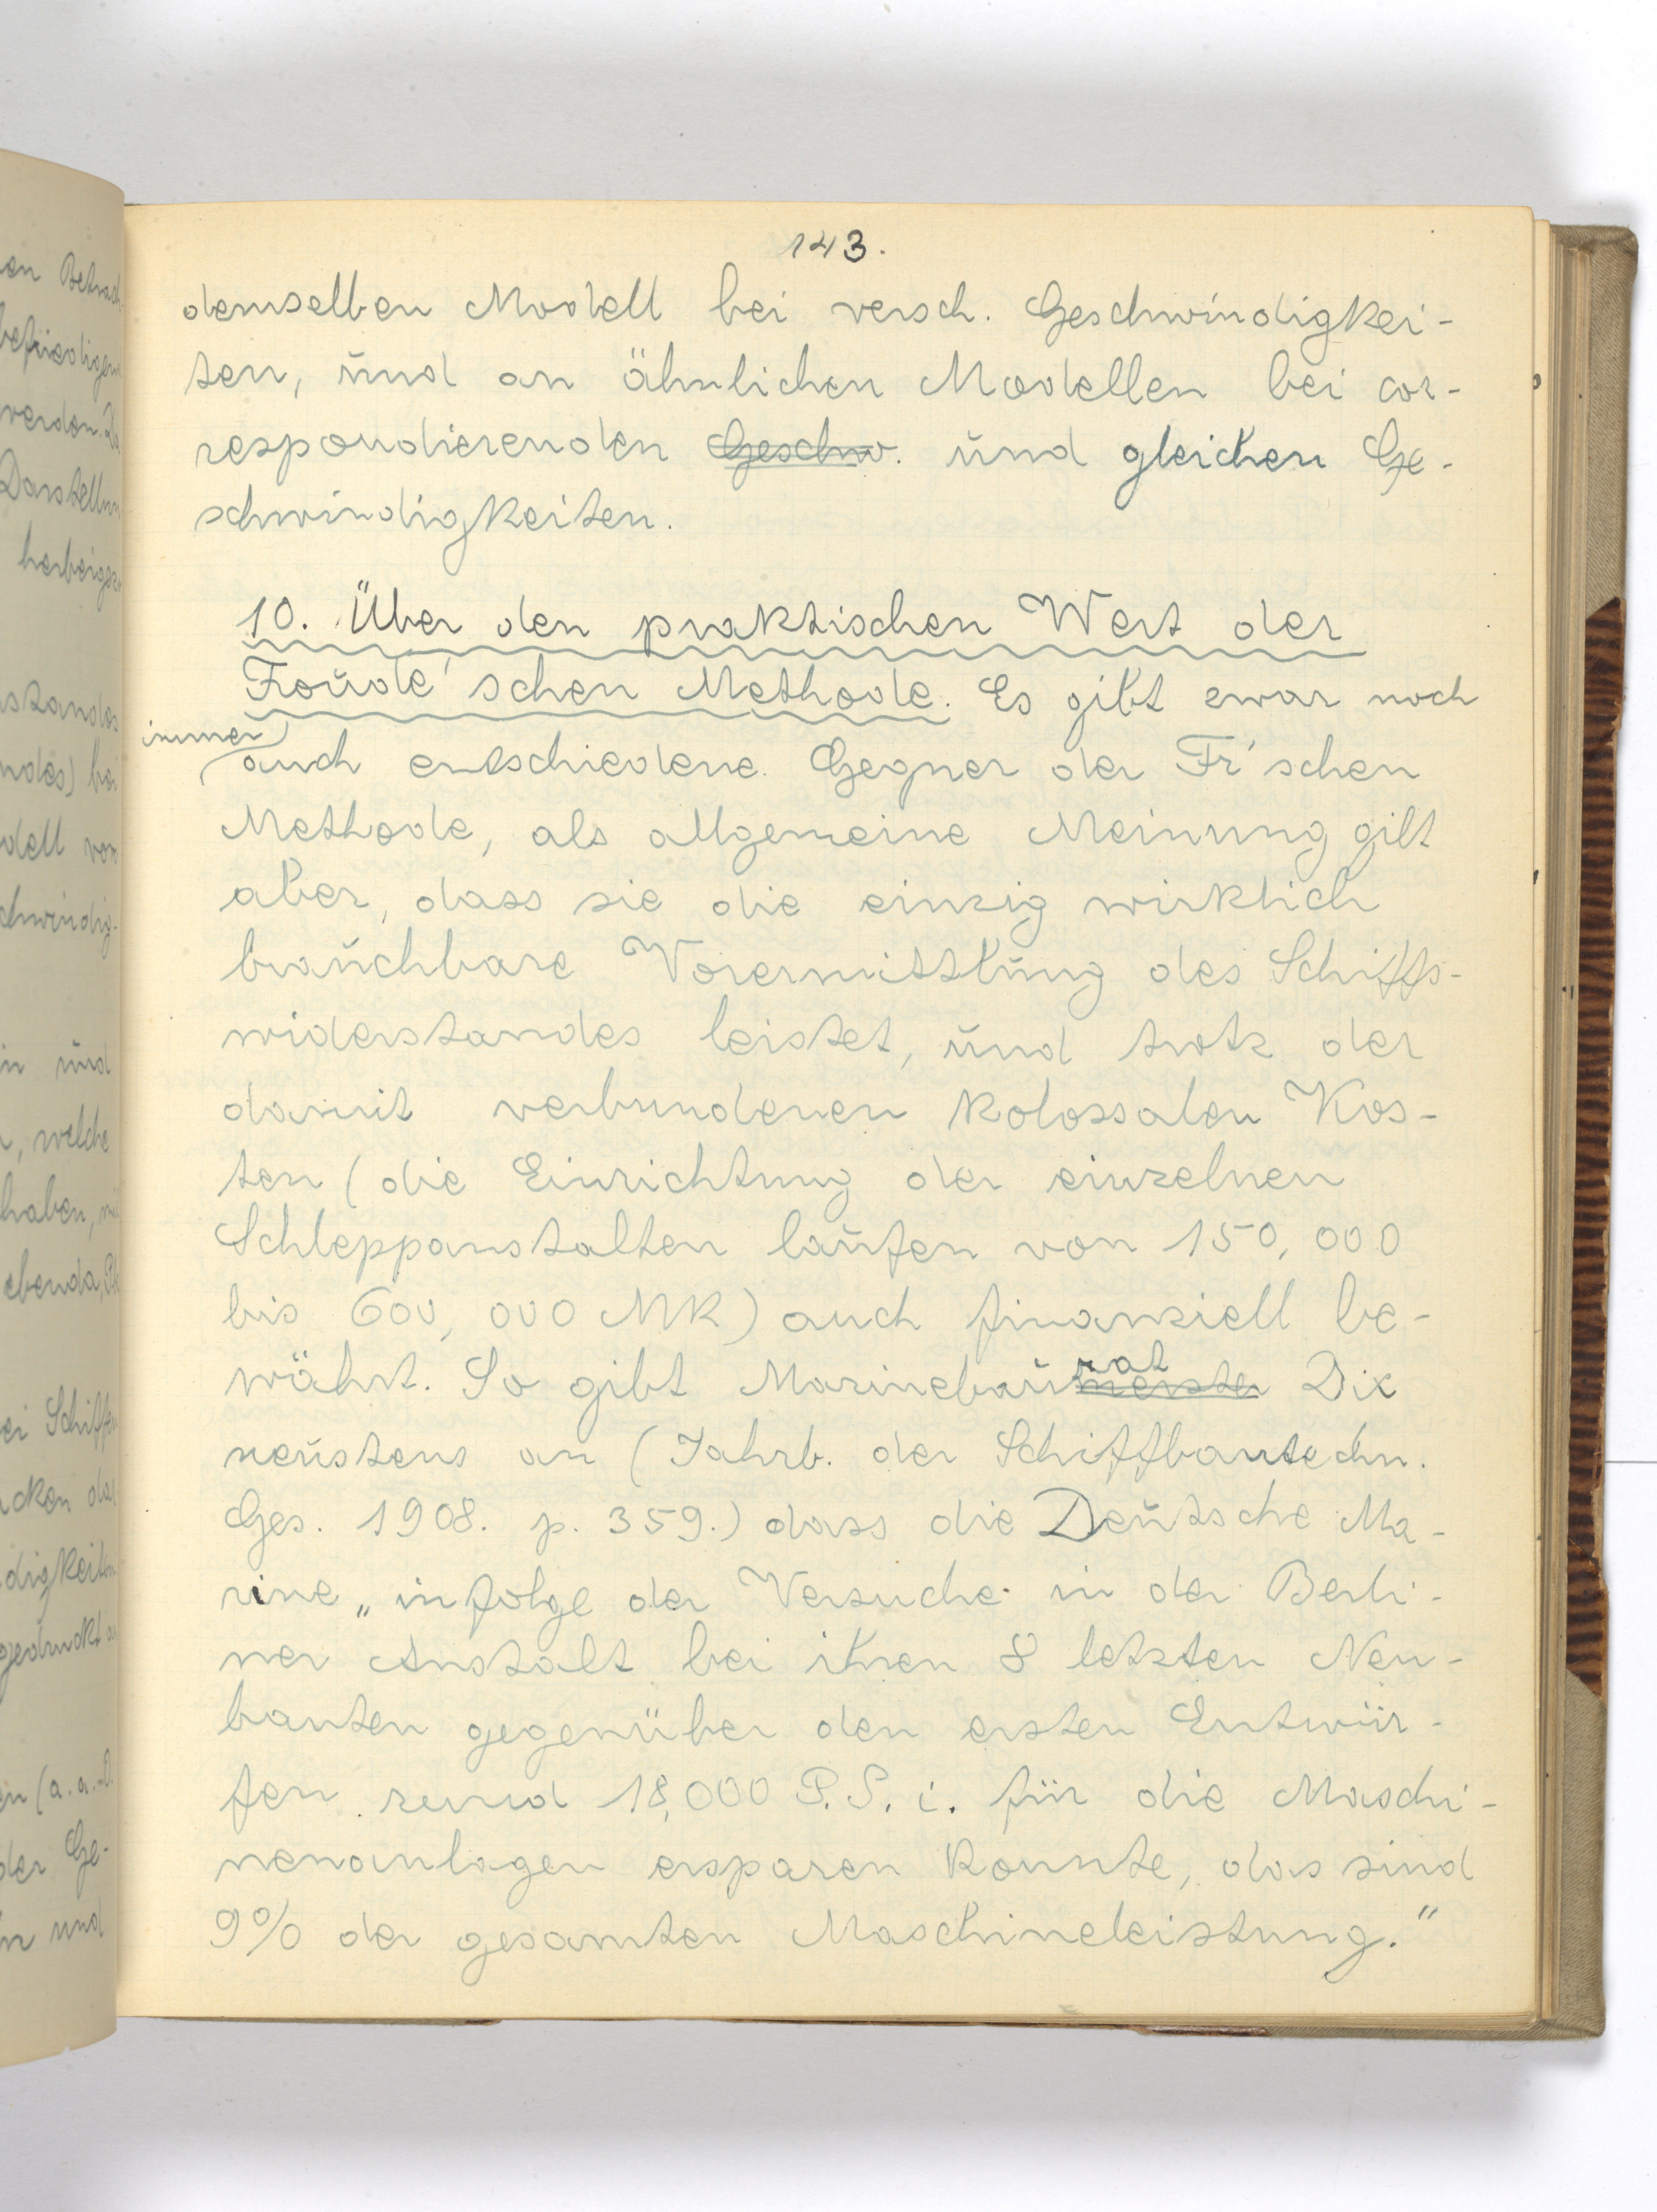 143.
demselben Modell bei versch. Geschwindigkei-
ten, und an ähnlichen Modellen bei cor-
respondierenden Geschw. und gleichen Ge-
schwindigkeiten.
10. Über den praktischen Wert der
Froude'schen Methode. Es gibt zwar noch
immer auch entschiedene Gegner der Fr'schen
Methode, als allgemeine Meinung gilt
aber, dass sie die einzig wirklich
brauchbare Vorermittlung des Schiffs-
widerstandes leistet, und trotz der
damit verbundenen kolossalen Kos-
ten (die Einrichtung der einzelnen
Schleppanstalten laufen von 150,000
bis 600,000 MK) auch finanziell be-
währt. So gibt Marinebaumeister rat Dix
neustens an (Jahrb. der Schiffbautechn.
Ges. 1908. p. 359.) dass die Deutsche Ma-
rine „infolge der Versuche in der Berli-
ner Anstalt bei ihren 8 letzten Neu-
bauten gegenüber den ersten Entwür-
fen rund 18,000 P.S.i. für die Maschi-
nenanlagen ersparen konnte, das sind
9% der gesamten Maschineleistung."